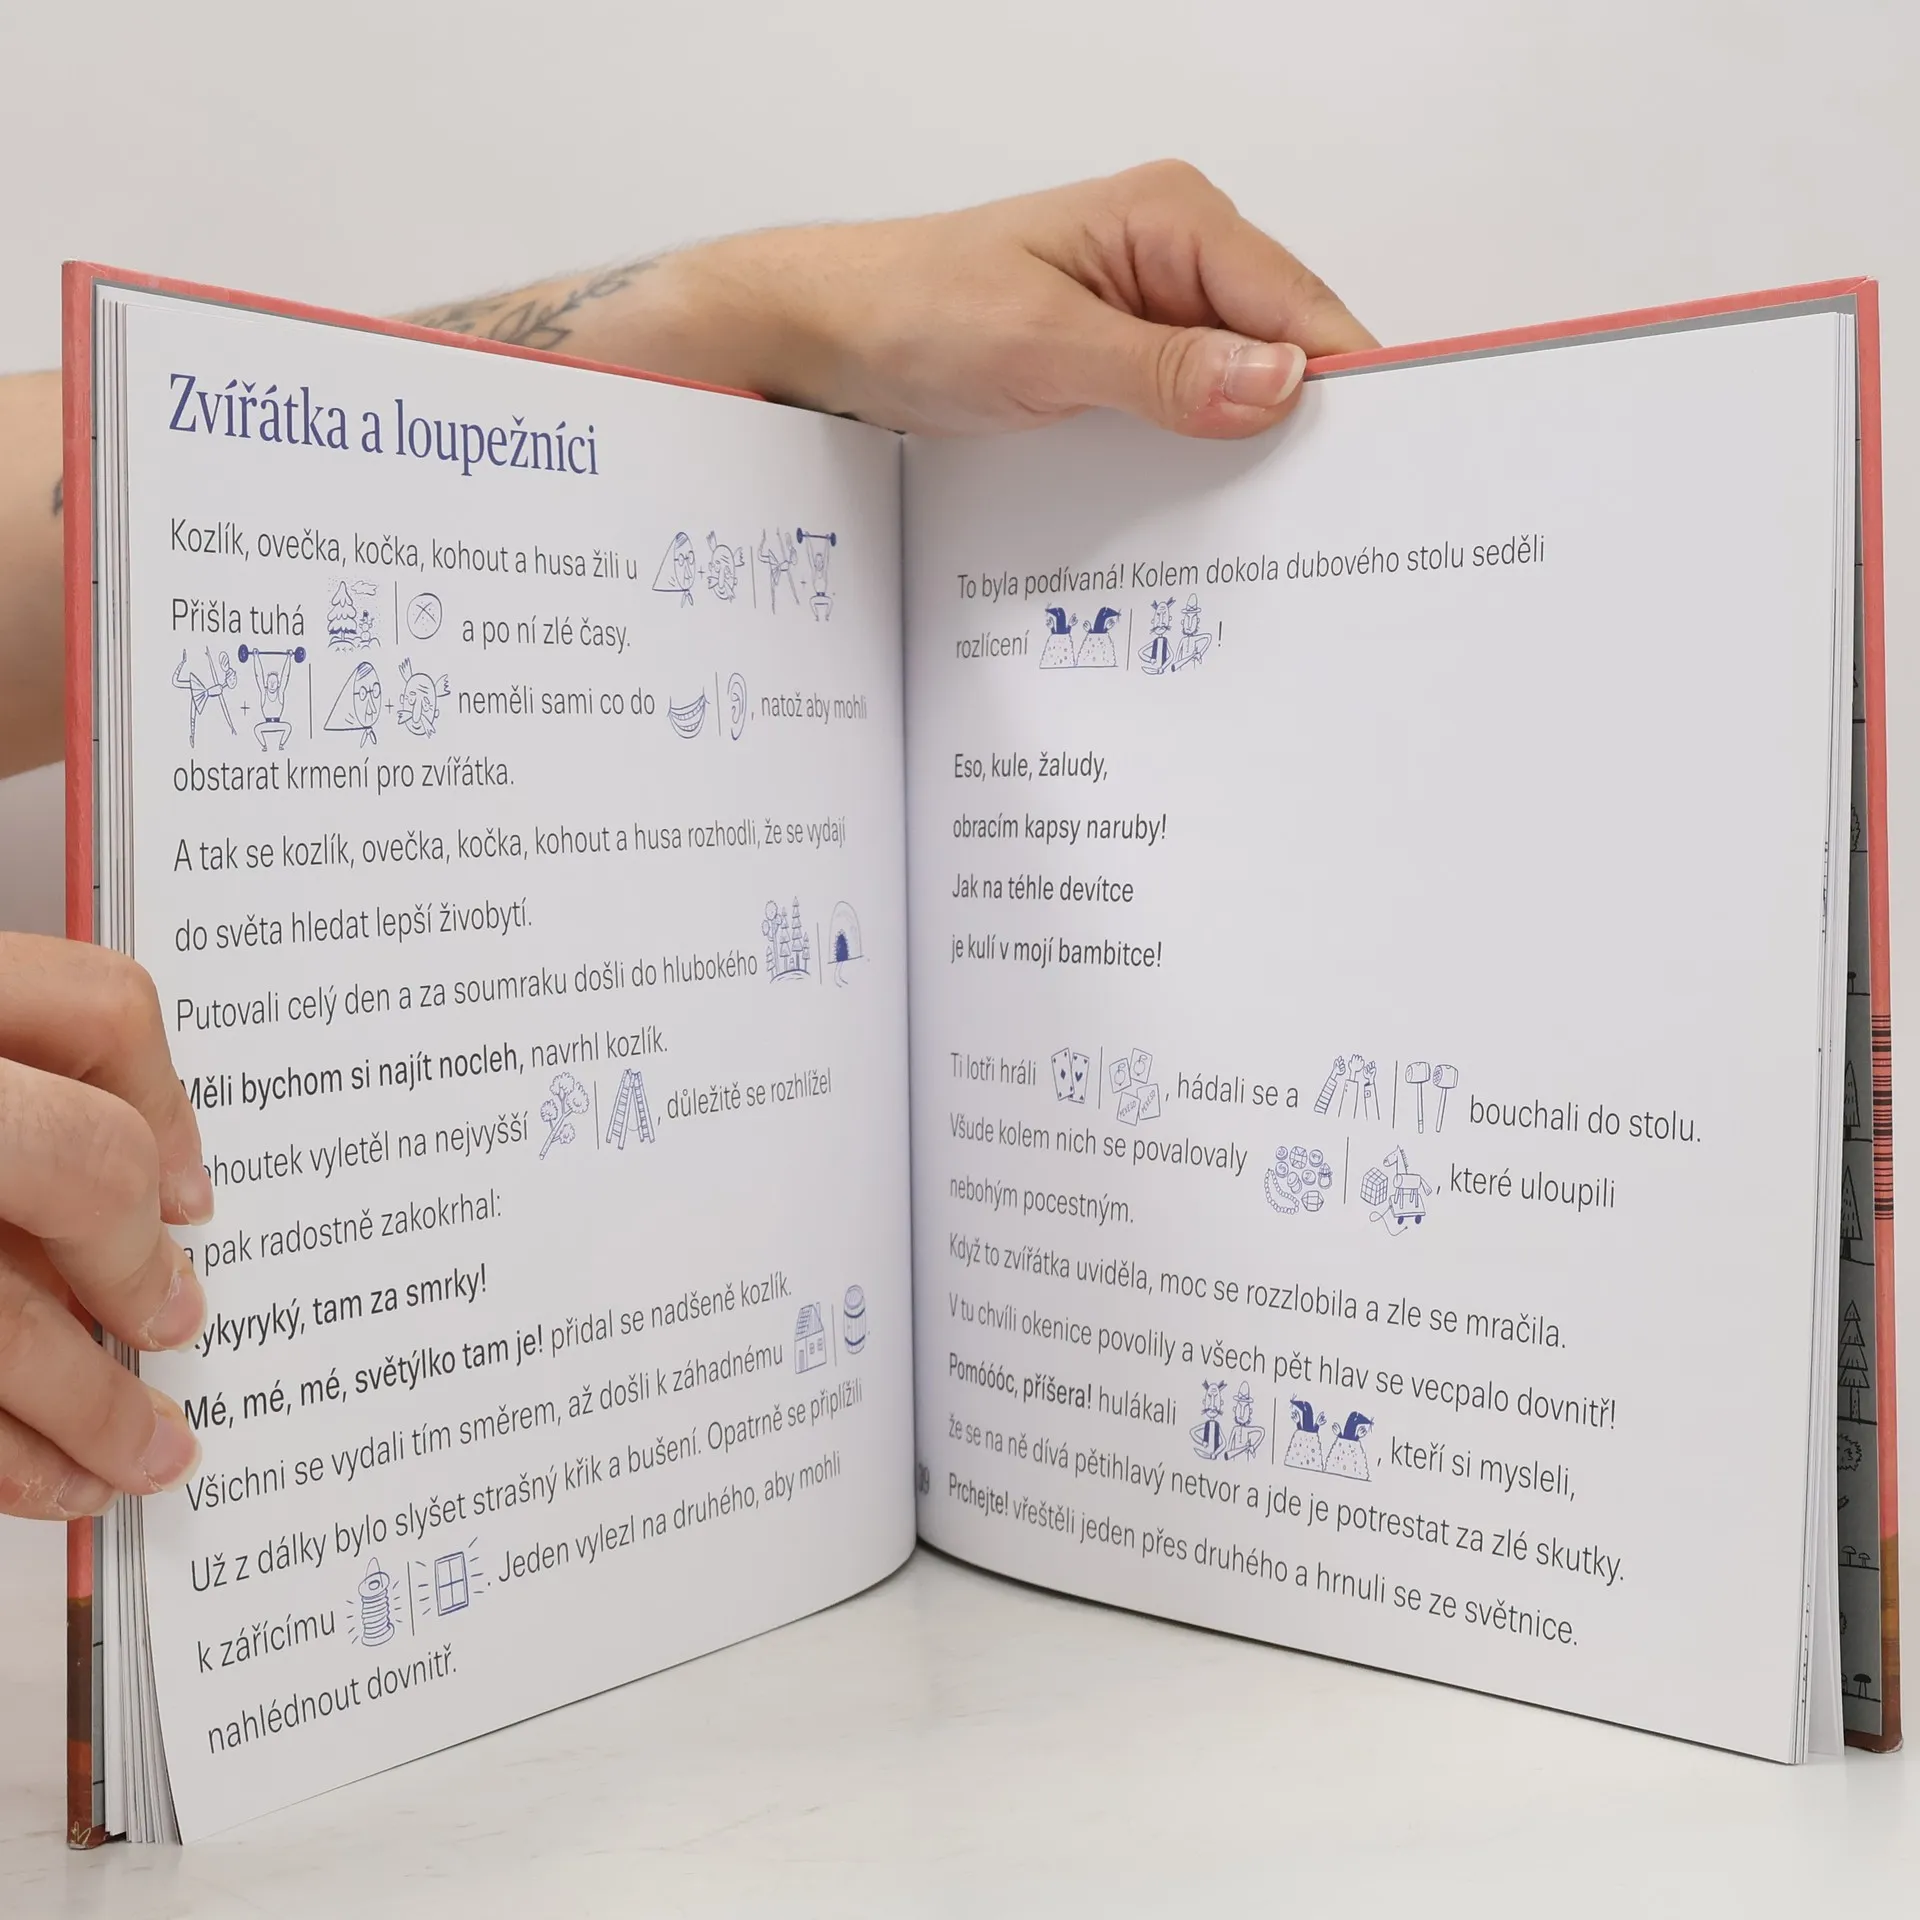 Zvířátka a loupežníci
Kozlík, ovečka, kočka, kohout a husa žili u
Přišla tuhá a po ní zlé časy.
neměli sami co do , natož aby mohli
obstarat krmení pro zvířátka.
A tak se kozlík, ovečka, kočka, kohout a husa rozhodli, že se vydají
do světa hledat lepší živobytí.
Putovali celý den a za soumraku došli do hlubokého .
Měli bychom si najít nocleh, navrhl kozlík.
houtek vyletěl na nejvyšší , důležitě se rozhlížel
a pak radostně zakokrhal:
ykyryký, tam za smrky!
Mé, mé, mé, světýlko tam je! přidal se nadšeně kozlík.
Všichni se vydali tím směrem, až došli k záhadnému .
Už z dálky bylo slyšet strašný křik a bušení. Opatrně se připlížili
k zářícímu . Jeden vylezl na druhého, aby mohli
nahlédnout dovnitř.
To byla podívaná! Kolem dokola dubového stolu seděli
rozlícení !
Eso, kule, žaludy,
obracím kapsy naruby!
Jak na téhle devítce
je kulí v mojí bambitce!
Ti lotři hráli , hádali se a bouchali do stolu.
Všude kolem nich se povalovaly , které uloupili
nebohým pocestným.
Když to zvířátka uviděla, moc se rozzlobila a zle se mračila.
V tu chvíli okenice povolily a všech pět hlav se vecpalo dovnitř!
Pomóóóc, příšera! hulákali , kteří si mysleli,
že se na ně dívá pětihlavý netvor a jde je potrestat za zlé skutky.
Prchejte! vřeštěli jeden přes druhého a hrnuli se ze světnice.